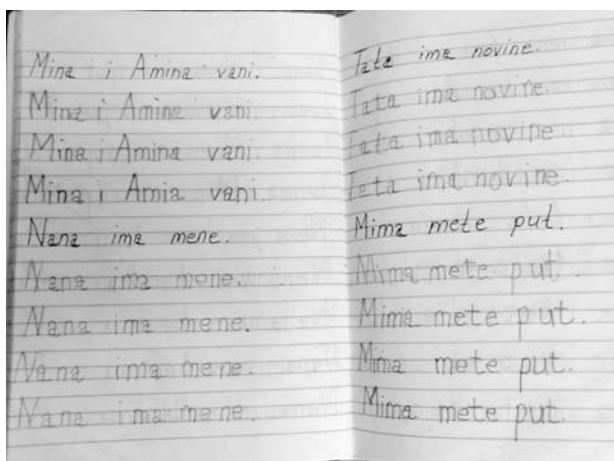 Mina i Amina vani.
Mina i Amina vani.
Mina i Amina vani.
Mina i Amia vani.
Nana ima mene.
Nana ima mene.
Nana ima mene.
Nana ima mene.
Nana ima mene.
Tata ima novine.
Tata ima novine.
Tata ima novine.
Tata ima novine.
Mima mete put.
Mima mete put.
Mima mete put.
Mima mete put.
Mima mete put.